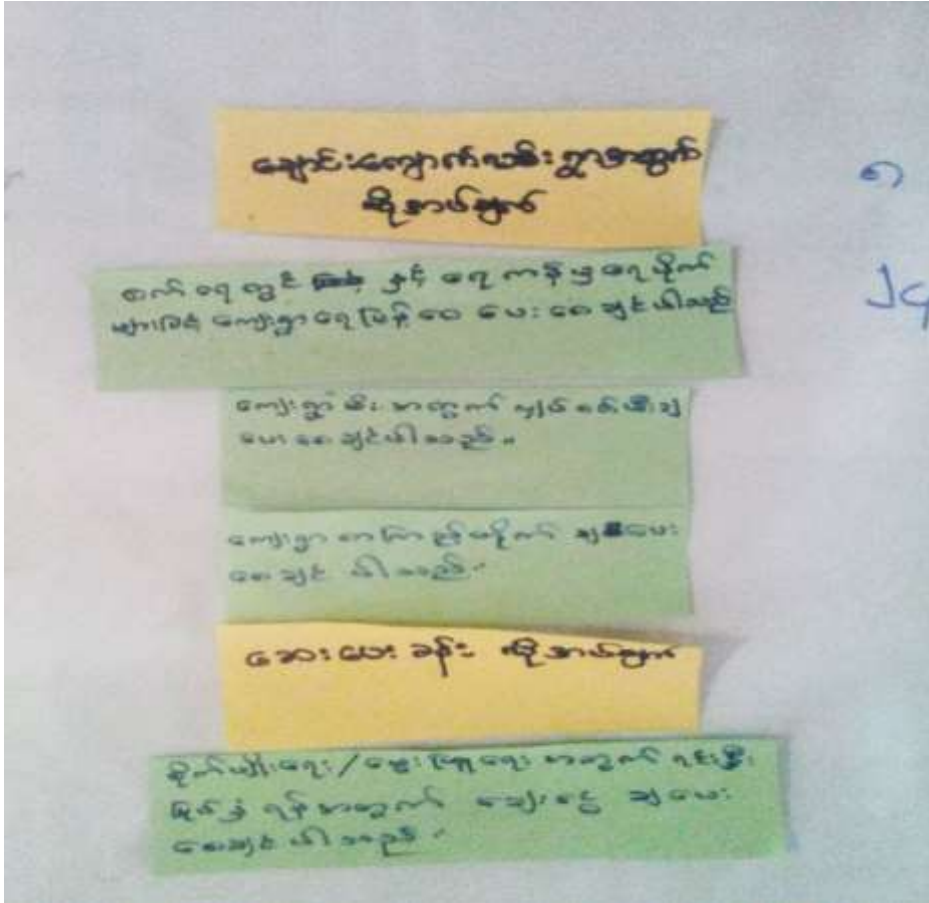 ချောင်းကျောက်လမ်းရွာအတွက်
လိုအပ်ချက်
၅
စက်ရေတွင်း နှင့် ရေကန်မှ ရေပိုက်
များဖြင့် ကျေးရွာရေဖြန့်ဝေ ပေးစေချင်ပါသည်
၂၄
ကျေးရွာမီးအတွက် လျှပ်စစ်မီးချ
ပေးစေချင်ပါသည်။
ကျေးရွာစာကြည့်တိုက် ချပေး
စေချင်ပါသည်။
ဆေးပေးခန်း လိုအပ်ချက်
စိုက်ပျိုးရေး/မွေးမြူရေး အတွက် ရင်းနှီး
မြှုပ်နှံရန်အတွက် ချေးငွေ ချပေး
စေချင်ပါသည်။